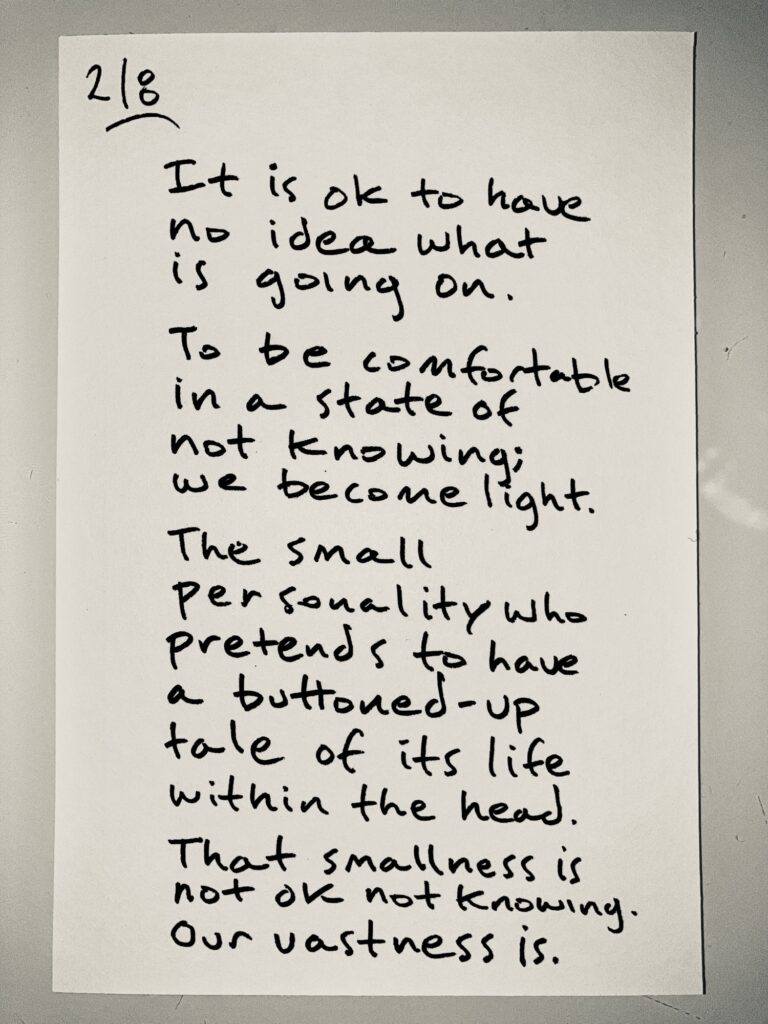 2/8
It is ok to have
no idea what
is going on.
To be comfortable
in a state of
not knowing;
we become light.
The small
personality who
pretends to have
a buttoned-up
tale of its life
within the head.
That smallness is
not ok not knowing.
Our vastness is.